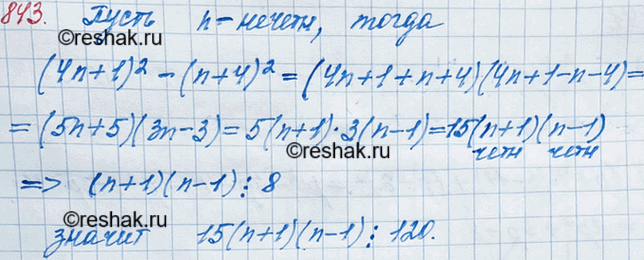 843. Пусть n - нечетн, тогда
©reshak.ru
(4n+1)² - (n+4)² = (4n+1+n+4)(4n+1-n-4)=
= (5n+5)(3n-3) = 5(n+1)·3(n-1)=15(n+1)(n-1)
©reshak.ru
четн четн
=> (n+1)(n-1)⋮8
©reshak.ru
значит 15(n+1)(n-1)⋮120.